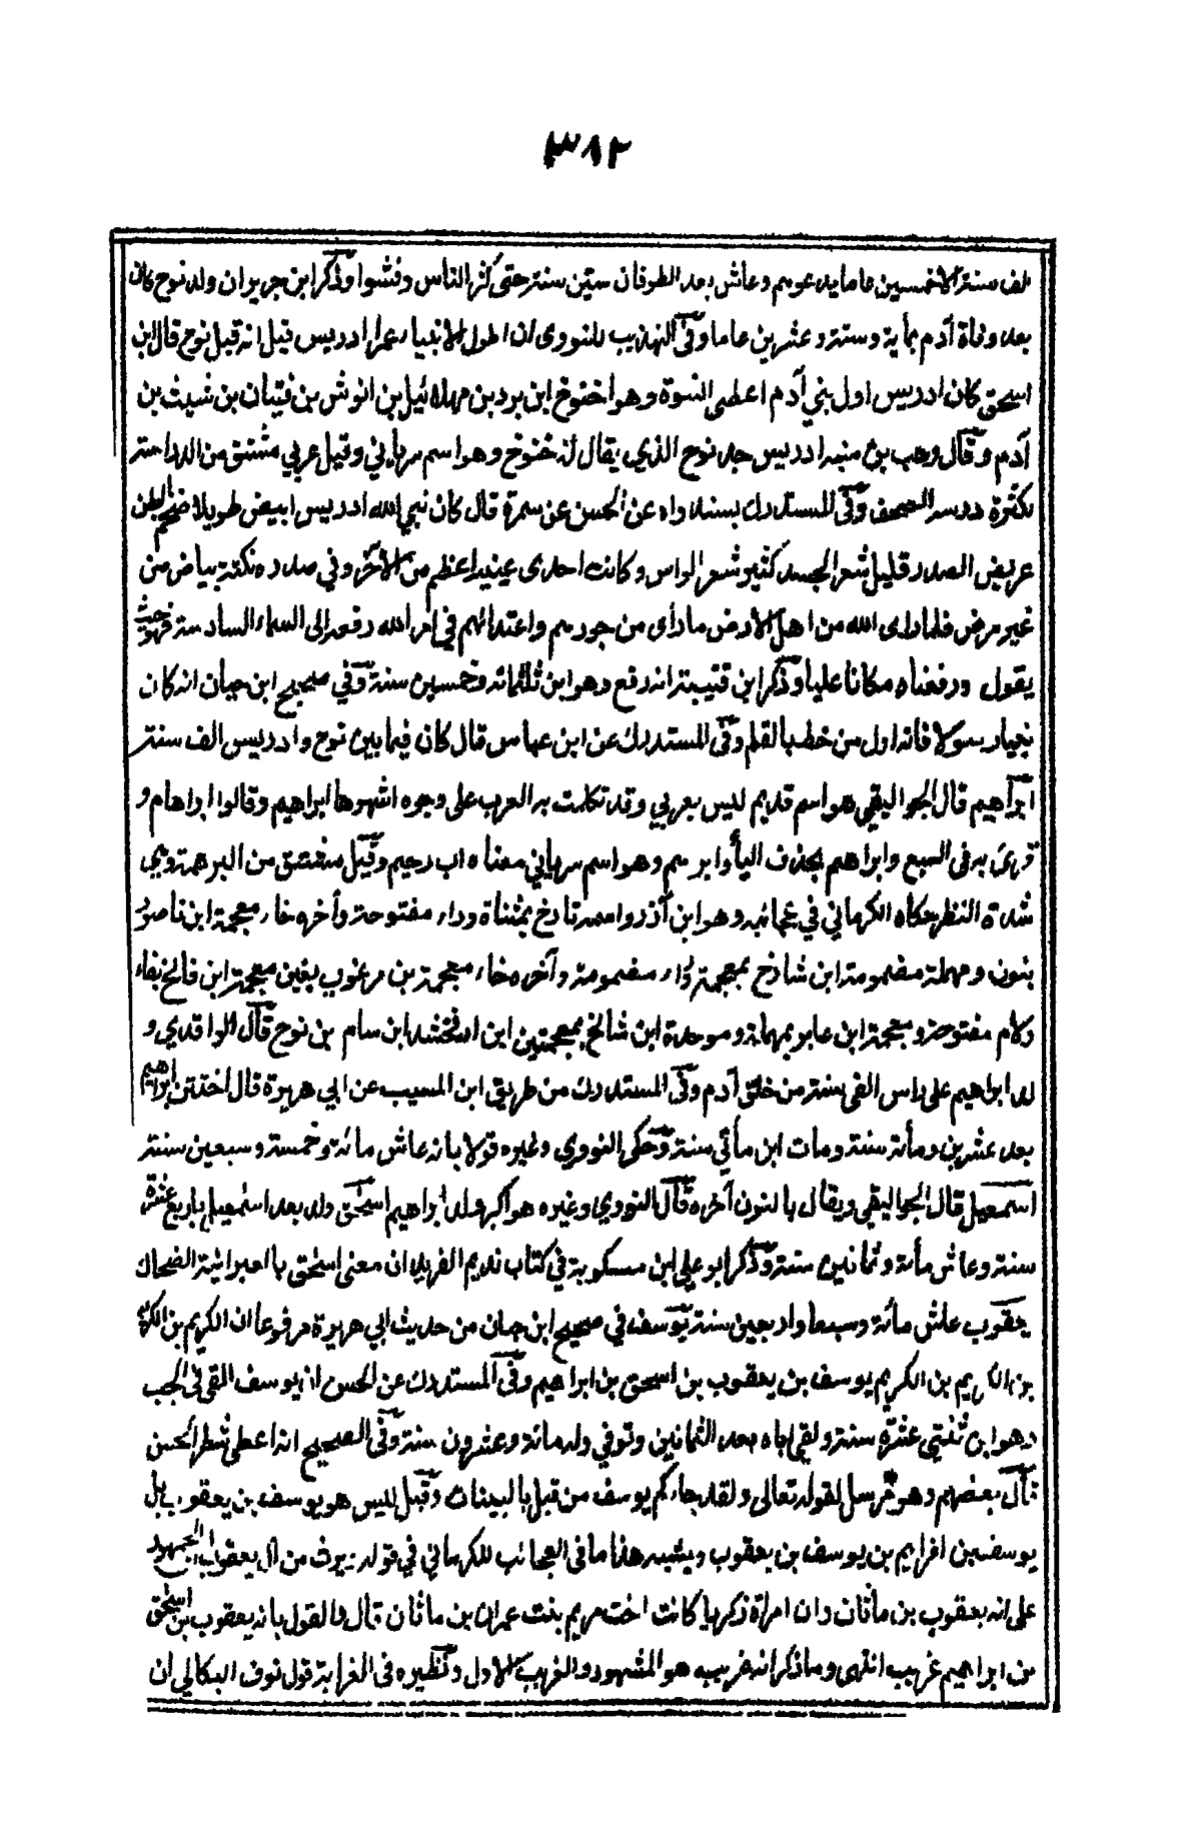 ٣٨٢
الف سنة الا خمسين عاما يدعوهم وعاش بعد الطوفان ستين سنة حتى كثر الناس وفشوا وذكر ابن جرير ان ولد نوح كان
بعد وفاة آدم بمأية وستة وعشرين عاما وفى التهذيب للنووى ان اطول الانبياء عمرا ادريس قيل انه قبل نوح قال ابن
اسحق كان ادريس اول بني آدم اعطى النبوة وهو اخنوخ ابن يرد بن مهلائيل بن انوش بن قتيان بن شيث بن
آدم وقال وهب بن منبه ادريس جد نوح الذي يقال له خنوخ وهو اسم سرياني وقيل عربي مشتق من الدراسة
لكثرة درسه الصحف وفى المستدرك بسند واه عن الحسن عن سمرة قال كان نبي الله ادريس ابيض طويلا ضخم البطن
عريض الصدر قليل شعر الجسد كثير شعر الراس وكانت احدى عينيه اعظم من الاخرى وفي صدره نكتة بياض من
غير مرض فلما راى الله من اهل الارض ما رأى من جورهم واعتدائهم في امر الله رفعه الى السماء السادسة فهو حيث
يقول ورفعناه مكانا عليا وذكر ابن قتيبة انه رفع وهو ابن ثلثمائة وخمسين سنة وفي صحيح ابن حبان انه كان
نبيا رسولا فانه اول من خط بالقلم وفى المستدرك عن ابن عباس قال كان فيما بين نوح وادريس الف سنة
ابراهيم قال الجواليقي هو اسم قديم ليس بعربي وقد تكلمت به العرب على وجوه اشهرها ابراهيم وقالوا ابراهام و
قرئ به فى السبع وابراهم بحذف اليأ وابرهم وهو اسم سرياني معناه اب رحيم وقيل مشتق من البرهمة وهي
شدة النظر حكاه الكرماني في عجائبه وهو ابن آذر واسمه تارخ بمثناة وراء مفتوحة وأخره خاء معجمة ابن ناحور
بنون ومهملة مضمومة ابن شارخ بمعجمة وراء مضمومة وآخره خاء معجمة بن مرغوب بغين معجمة ابن فالخ بفاء
ولام مفتوحة ومعجمة ابن عابر بمهملة وموحدة ابن شالخ بمعجمتين ابن ارفخشد ابن سام بن نوح قال الواقدي و
لد ابراهيم على راس الفى سنة من خلق آدم وفى المستدرك من طريق ابن المسيب عن ابي هريرة قال اختتن ابراهيم
بعد عشرين ومأة سنة ومات ابن مأتي سنة وحكى النووي وغيره قولا بانه عاش مائة وخمسة وسبعين سنة
اسمعيل قال الجواليقي ويقال بالنون آخره قال النووي وغيره هو اكبر ولد ابراهيم اسحق ولد بعد اسمعيل باربع عشرة
سنة وعاش مأة وثمانين سنة وذكر ابو علي ابن مسكوية في كتاب نديم الفريد ان معنى اسحق بالعبرانية الضحاك
يعقوب عاش مائة وسبعا واربعين سنة يوسف في صحيح ابن حبان من حديث ابي هريرة مرفوعا ان الكريم بن الكريم
بن الكريم بن الكريم يوسف بن يعقوب بن اسحق بن ابراهيم وفى المستدرك عن الحسن ان يوسف القى فى الجب
وهو ابن ثنتى عشرة سنة ولقى اباه بعد الثمانين وتوفي وله مائة وعشرون سنة وفى الصحيح انه اعطى شطر الحسن
قال بعضهم وهو مرسل لقوله تعالى ولقد جاءكم يوسف من قبل بالبينات وقيل ليس هو يوسف بن يعقوب بل
يوسف بن افرايم بن يوسف بن يعقوب ويشبه هذا ما فى العجائب للكرماني في قوله ويرث من آل يعقوب ان الجمهور
على انه يعقوب بن ماثان وان امراة زكريا كانت اخت مريم بنت عمران بن ماثان قال والقول بانه يعقوب بن اسحق
بن ابراهيم غريب انتهى وما ذكر انه غريب هو المشهور والغريب الاول ونظيره فى الغرابة قول نوف البكالي ان